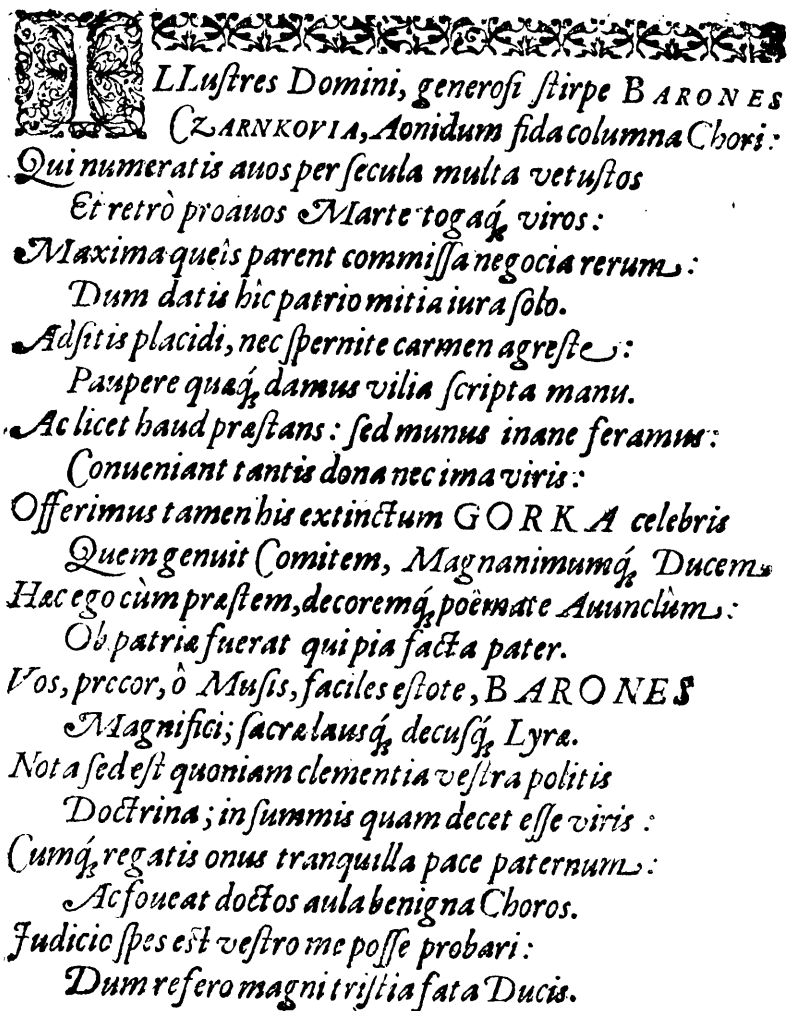 ILLuſtres Domini, generoſi ſtirpe BARONES
CZARNKOVIA, Aonidum fida columna Chori:
Qui numeratis auos per ſecula multa vetuſtos
Et retrò proauos Marte togaq́ꝫ viros:
Maxima queîs parent commiſſa negocia rerum:
Dum datis hîc patrio mitia iura ſolo.
Adſitis placidi, nec ſpernite carmen agreſte:
Paupere quæq́ꝫ damus vilia ſcripta manu.
Ac licet haud præſtans: ſed munus inane feramus:
Conueniant tantis dona nec ima viris:
Offerimus tamen his extinctum GORKA celebris
Quem genuit Comitem, Magnanimumq́ꝫ Ducem
Hæc ego cùm præſtem, decoremq́ꝫ poëmate Auunclûm:
Ob patriæ fuerat qui pia facta pater.
Vos, precor, ô Muſis, faciles eſtote, BARONES
Magnifici; ſacræ lausq́ꝫ decuſq́ꝫ Lyræ.
Nota ſed eſt quoniam clementia veſtra politis
Doctrina; in ſummis quam decet eſſe viris:
Cumq́ꝫ regatis onus tranquilla pace paternum:
Ac foueat doctos aula benigna Choros.
Judicio ſpes est veſtro me poſſe probari:
Dum refero magni triſtia fata Ducis.